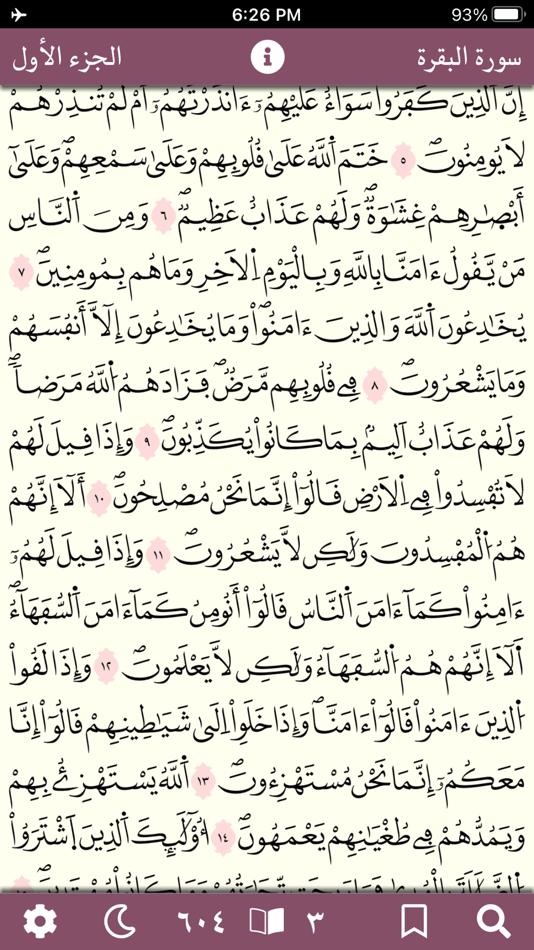 6:26 PM
93%
سورة البقرة
الجزء الأول
إِنَّ اَ۬لذِينَ كَفَرُوا سَوَآءٌ عَلَيْهِمُۥٓ ءَآنذَرْتَهُمُۥٓ أَمْ لَمْ تُنذِرْهُمْ
لَا يُومِنُونَۖ ٥ خَتَمَ اَ۬للَّهُ عَلَىٰ قُلُوبِهِمْ وَعَلَىٰ سَمْعِهِمْۖ وَعَلَىٰٓ
أَبْصٰ۪رِهِمْ غِشَٰوَةٞۖ وَلَهُمْ عَذَابٌ عَظِيمٞۖ ٦ وَمِنَ اَ۬لنَّاسِ
مَنْ يَّقُولُ ءَامَنَّا بِاللَّهِ وَبِالْيَوْمِ اِ۬لَاخِرِ وَمَا هُم بِمُومِنِينَۖ ٧
يُخَٰدِعُونَ اَ۬للَّهَ وَالذِينَ ءَامَنُواْۖ وَمَا يُخَٰدِعُونَ إِلَّآ أَنفُسَهُمْ
وَمَا يَشْعُرُونَۖ ٨ فِے قُلُوبِهِم مَّرَضٞۖ فَزَادَهُمُ اُ۬للَّهُ مَرَضاٗۖ
وَلَهُمْ عَذَابٌ اَلِيمُۢ بِمَا كَانُواْ يُكَذِّبُونَۖ ٩ وَإِذَا قِيلَ لَهُمْ
لَا تُفْسِدُواْ فِے اِ۬لَارْضِ قَالُوٓاْ إِنَّمَا نَحْنُ مُصْلِحُونَۖ ١٠ أَلَآ إِنَّهُمْ
هُمُ اُ۬لْمُفْسِدُونَ وَلَٰكِن لَّا يَشْعُرُونَۖ ١١ وَإِذَا قِيلَ لَهُمُۥٓ
ءَامِنُواْ كَمَآ ءَامَنَ اَ۬لنَّاسُ قَالُوٓاْ أَنُومِنُ كَمَآ ءَامَنَ اَ۬لسُّفَهَآءُۖ
أَلَآ إِنَّهُمْ هُمُ اُ۬لسُّفَهَآءُ وَلَٰكِن لَّا يَعْلَمُونَۖ ١٢ وَإِذَا لَقُواْ
اُ۬لذِينَ ءَامَنُواْ قَالُوٓاْ ءَامَنَّاۖ وَإِذَا خَلَوِاْ اِلَىٰ شَيَٰطِينِهِمْ قَالُوٓاْ إِنَّا
مَعَكُمُۥٓ إِنَّمَا نَحْنُ مُسْتَهْزِءُونَۖ ١٣ اَ۬للَّهُ يَسْتَهْزِئُ بِهِمْ
وَيَمُدُّهُمْ فِے طُغْيَٰنِهِمْ يَعْمَهُونَۖ ١٤ أُوْلَٰٓئِكَ اَ۬لذِينَ اَ۪شْتَرَوُاْ
٦٠٤
٣